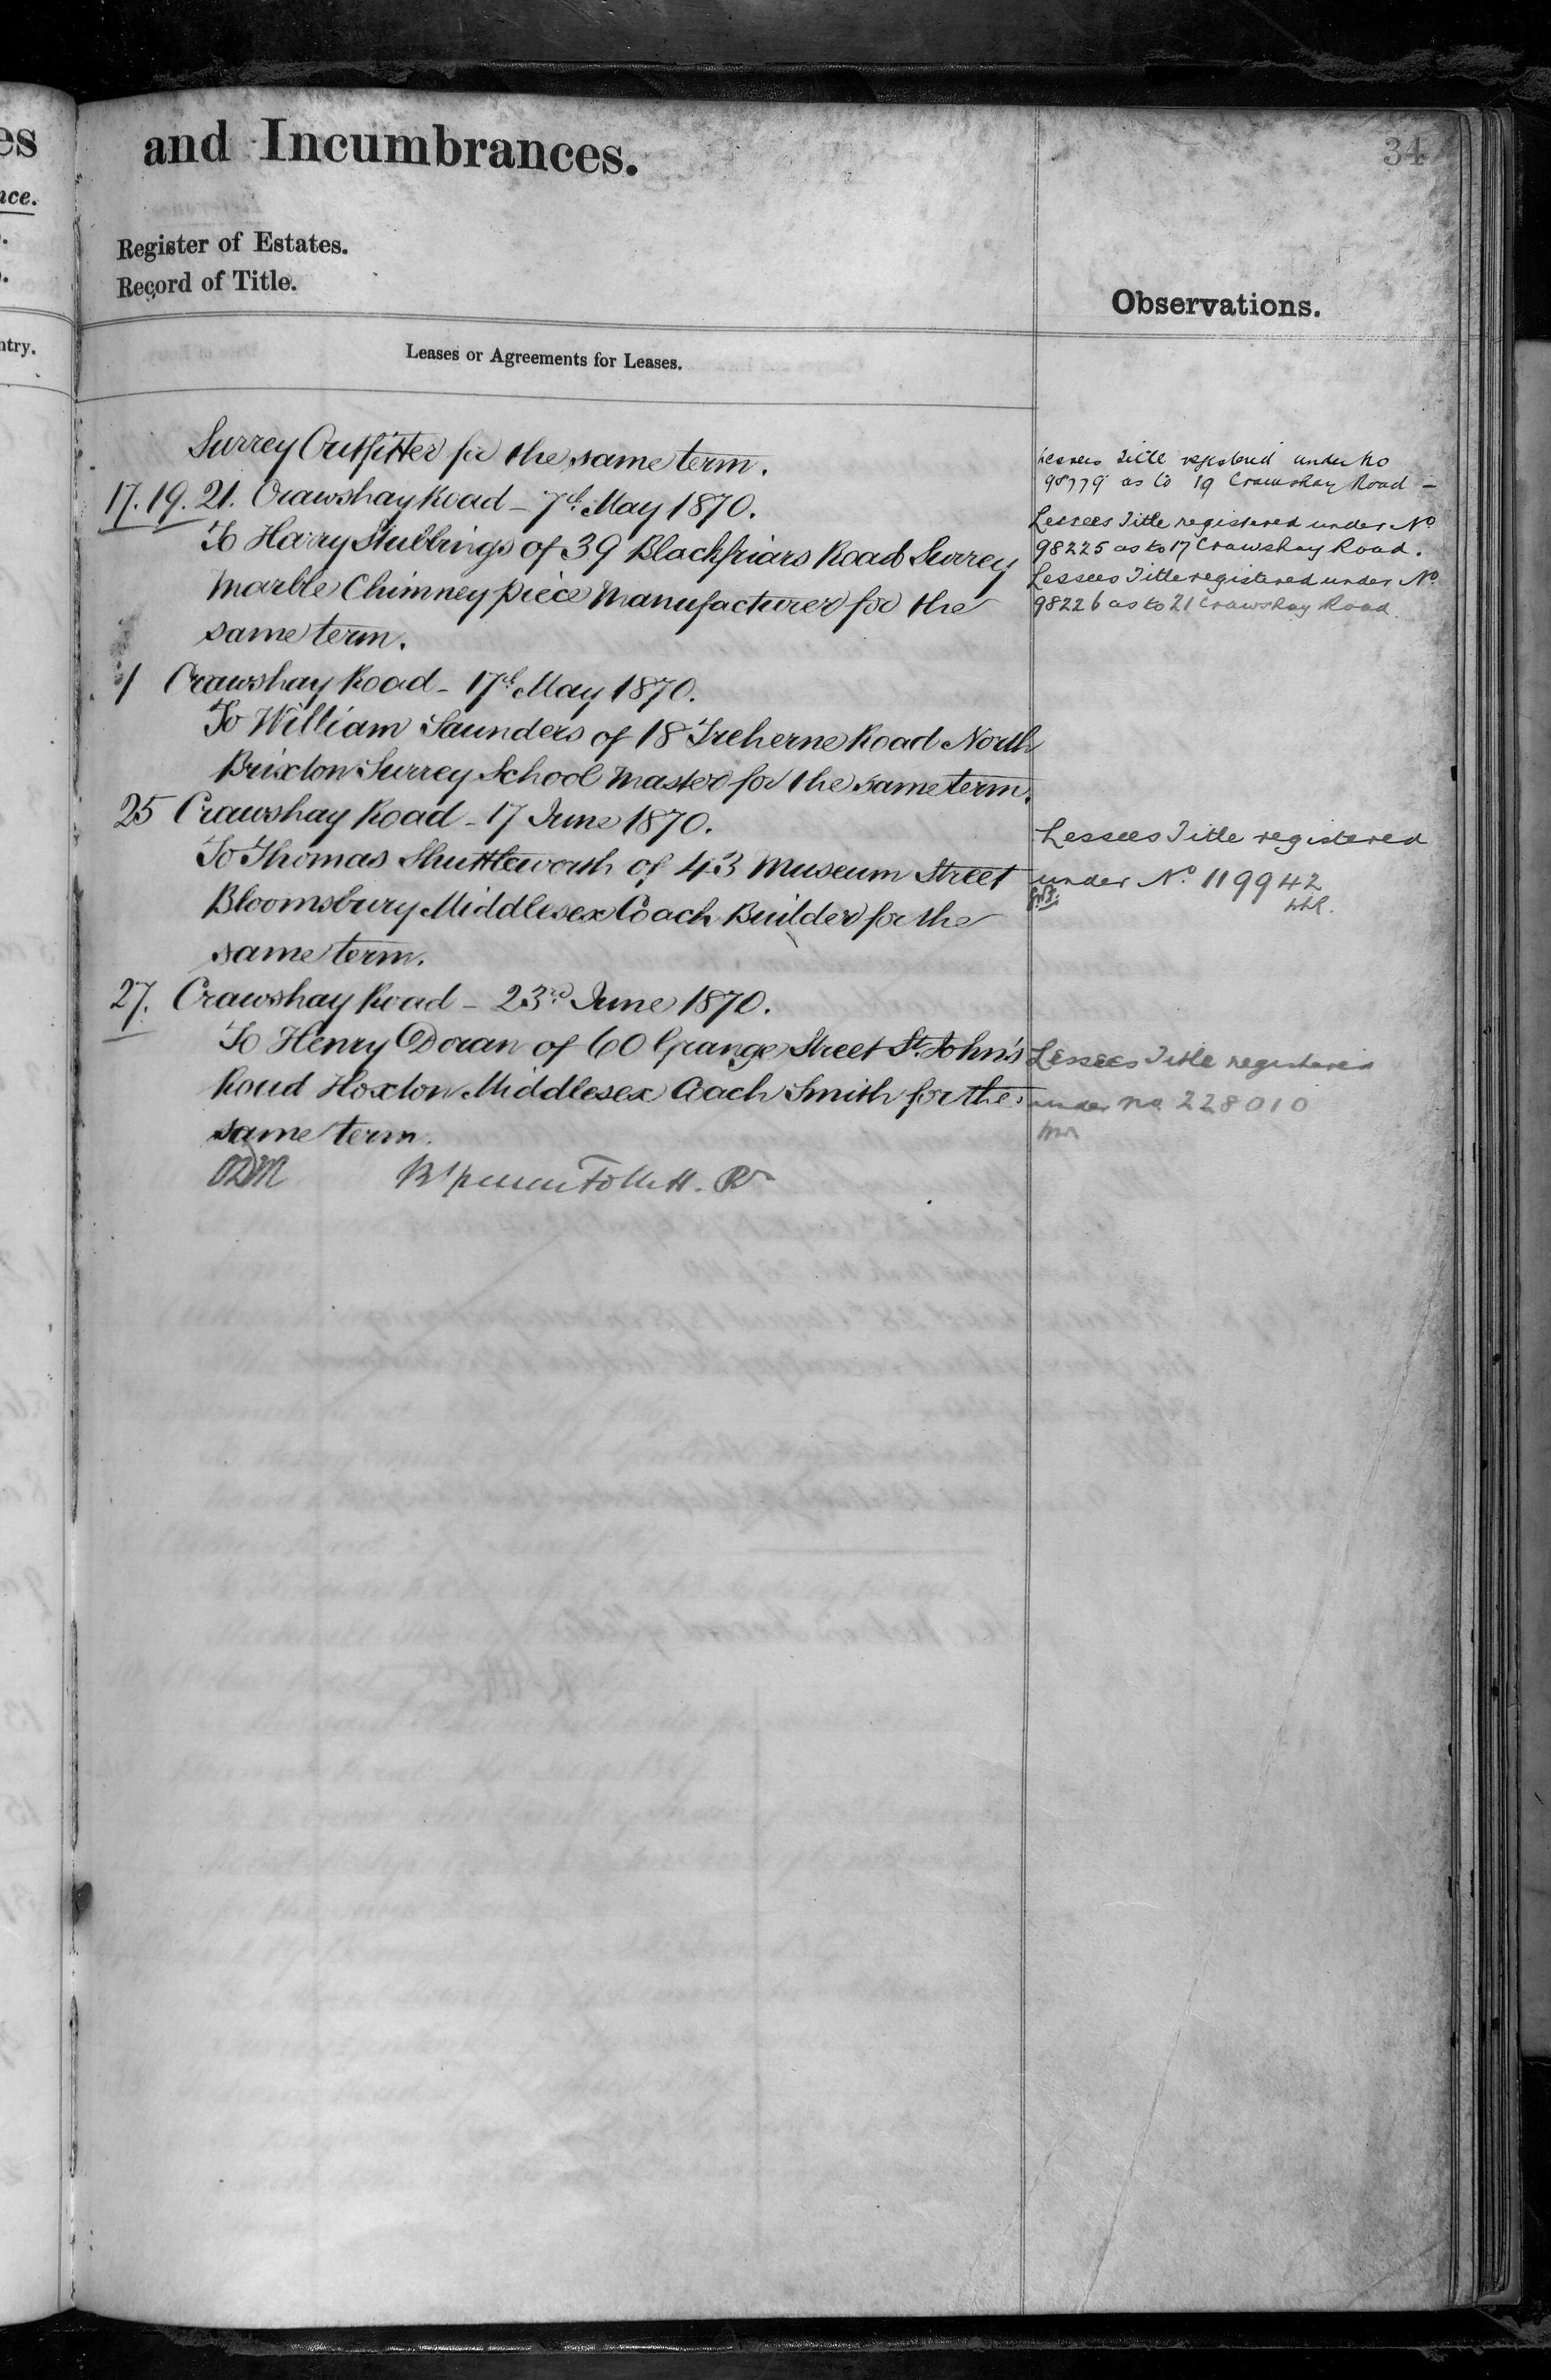 and Incumbrances.
34
Register of Estates.
Record of Title.
Observations.
Leases or Agreements for Leases.
Surrey Outfitter for the same term.
17. 19. 21. Crawshay Road - 7th May 1870.
To Harry Stubbings of 39 Blackfriars Road Surrey
Marble Chimney piece Manufacturer for the
same term.
1 Crawshay Road - 17th May 1870.
To William Saunders of 18 Treherne Road North
Brixton Surrey School Master for the same term.
25 Crawshay Road - 17 June 1870.
To Thomas Shuttleworth of 43 Museum Street
Bloomsbury Middlesex Coach Builder for the
same term.
27. Crawshay Road - 23rd June 1870.
To Henry Doran of 60 Grange Street St. John's
Road Hoxton Middlesex Coach Smith for the
same term.
Follett. R
Lessees Title registered under No
98779 as to 19 Crawshay Road -
Lessees Title registered under No
98225 as to 17 Crawshay Road.
Lessees Title registered under No
98226 as to 21 Crawshay Road
Lessees Title registered
under No. 119942
Lessees Title registered
under no. 228010
es
nce.
ntry.